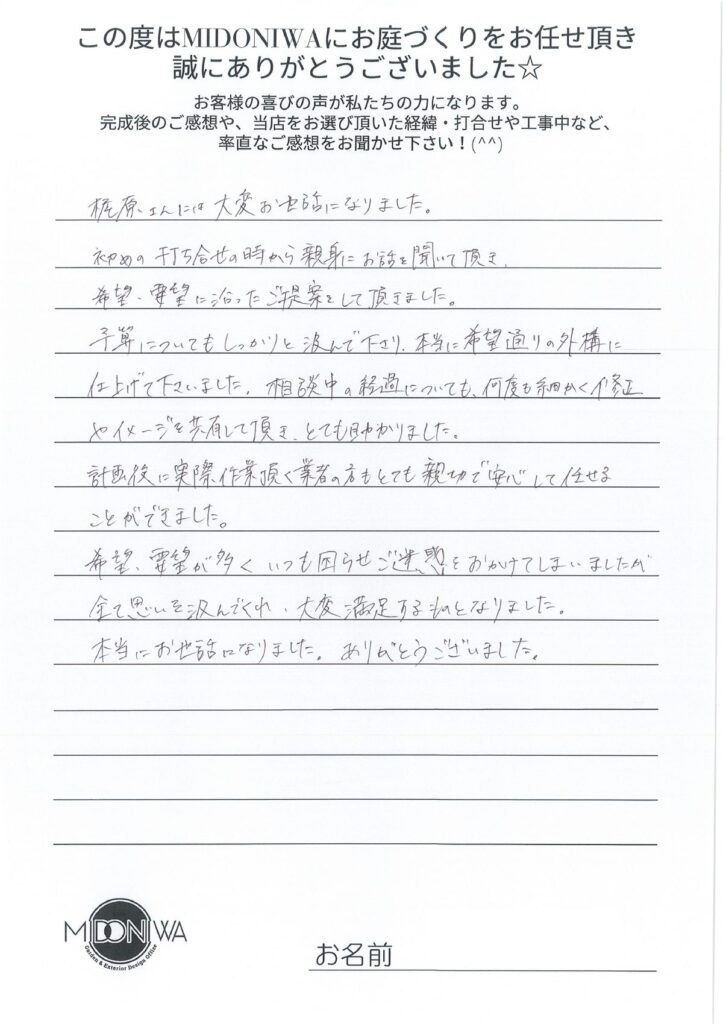 この度はMIDONIWAにお庭づくりをお任せ頂き
誠にありがとうございました☆
お客様の喜びの声が私たちの力になります。
完成後のご感想や、当店をお選び頂いた経緯・打合せや工事中など、
率直なご感想をお聞かせ下さい！(^^)
梶原さんには大変お世話になりました。
初めの打ち合せの時から親身にお話を聞いて頂き、
希望、要望に沿ったご提案をして頂きました。
予算についてもしっかりと汲んで下さり、本当に希望通りの外構に
仕上げて下さいました。相談中の経過についても、何度も細かく修正
やイメージを共有して頂き、とても助かりました。
計画後に実際作業頂く業者の方もとても親切で安心して任せる
ことができました。
希望、要望が多くいつも困らせご迷惑をおかけてしまいましたが
全て思いを汲んでくれ、大変満足するものとなりました。
本当にお世話になりました。ありがとうございました。
MIDONIWA
Garden & Exterior Design Office
お名前